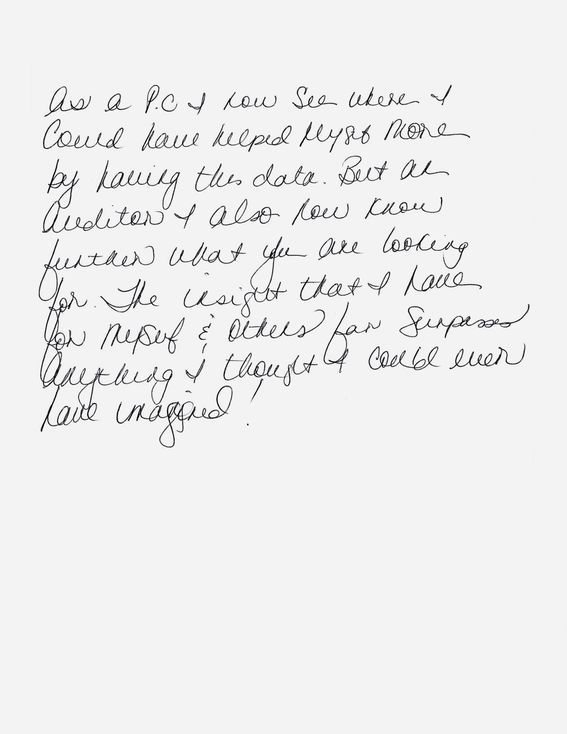 As a P.C I now See where I
Could have helped Myself More
by having this data. But an
Auditor I also now know
further what you are looking
for. The insight that I have
for Myself & Others far Surpasses
Anything I thought I could ever
have imagined!